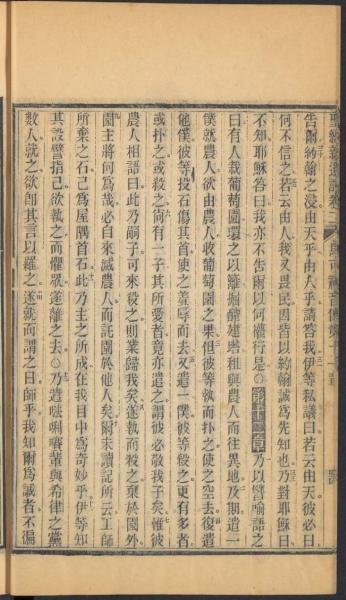 告爾約翰之浸由天乎由人乎請答我伊等私議曰若云由天彼必曰
何不信之若云由人我又畏民因皆以約翰誠為先知也乃對耶穌曰
不知耶穌答曰我亦不告爾以何權行是○第十二章乃以譬喻語之
曰有人栽葡萄園環之以籬掘醡建塔租與農人而往異地及期遣一
僕就農人欲由農人收葡萄園之果但彼等執而扑之使之空去復遣
他僕彼等投石傷其首使之羞辱而去又遣一僕彼等殺之更有多者
或扑之或殺之尚有一子其所愛者竟亦遣之謂彼必敬我子矣惟彼
農人相語曰此乃嗣子可來殺之則業歸我矣遂執而殺之棄於園外
園主將何為哉必自來滅農人而託園於他人矣爾未讀記所云工師
所棄之石已為屋隅首石此乃主之所成在我目中為奇妙乎伊等知
其設譬指己欲執之而懼眾遂離之去○乃遣𠵽唎賽輩與希律之黨
數人就之欲卽其言以羅之遂就而謂之曰師乎我知爾為誠者不徧